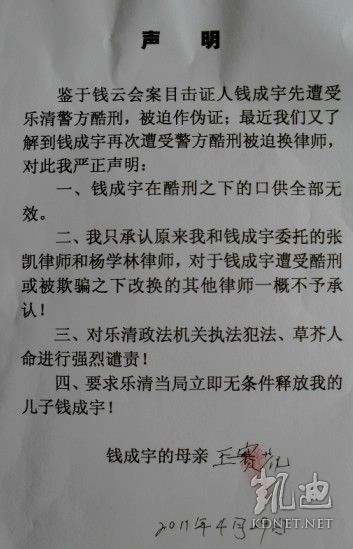 声 明
鉴于钱云会案目击证人钱成宇先遭受
乐清警方酷刑，被迫作伪证；最近我们又了
解到钱成宇再次遭受警方酷刑被迫换律师，
对此我严正声明：
一、钱成宇在酷刑之下的口供全部无
效。
二、我只承认原来我和钱成宇委托的张
凯律师和杨学林律师，对于钱成宇遭受酷刑
或被欺骗之下改换的其他律师一概不予承
认！
三、对乐清政法机关执法犯法、草芥人
命进行强烈谴责！
四、要求乐清当局立即无条件释放我的
儿子钱成宇！
钱成宇的母亲 王赛花
2011年4月 日
凯迪
KDNET.NET